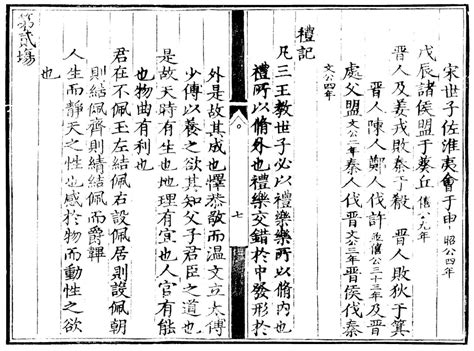 宋世子佐淮夷會于申 昭公四年
戊辰諸侯盟于葵丘 僖公九年
晉人及姜戎敗秦于殽 晉人敗狄于箕
晉人陳人鄭人伐許 並僖公三十三年 及晉
處父盟 文公二年 秦人伐晉 文公三年 晉侯伐秦
文公四年
禮記
凡三王教世子必以禮樂樂所以脩內也
禮所以脩外也禮樂交錯於中發形於
七
外是故其成也懌恭敬而溫文立太傅
少傅以養之欲其知父子君臣之道也
是故天時有生也地理有宜也人官有能
也物曲有利也
君在不佩玉左結佩右設佩居則設佩朝
則結佩齊則綪結佩而爵韠
人生而靜天之性也感於物而動性之欲
也
第貳場